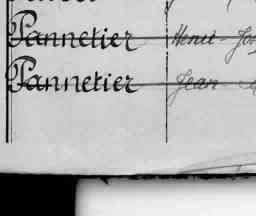 Pannetier Henri-Jos
Pannetier Jean